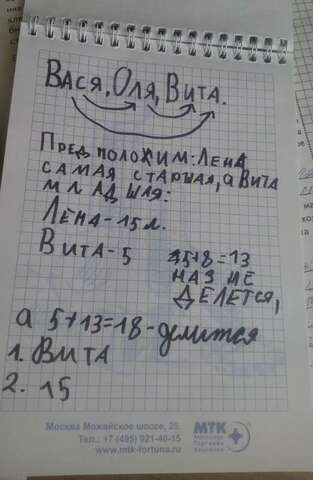 Вася, Оля, Вита.
Предположим: Лена
самая старшая, а Вита
младшая:
Лена - 15 л.
Вита - 5
5+8=13
на 3 не
делется,
а 5+13=18 - делится
1. Вита
2. 15
Москва Можайское шоссе, 25.
Тел.: +7 (495) 921-40-15
www.mtk-fortuna.ru
МТК